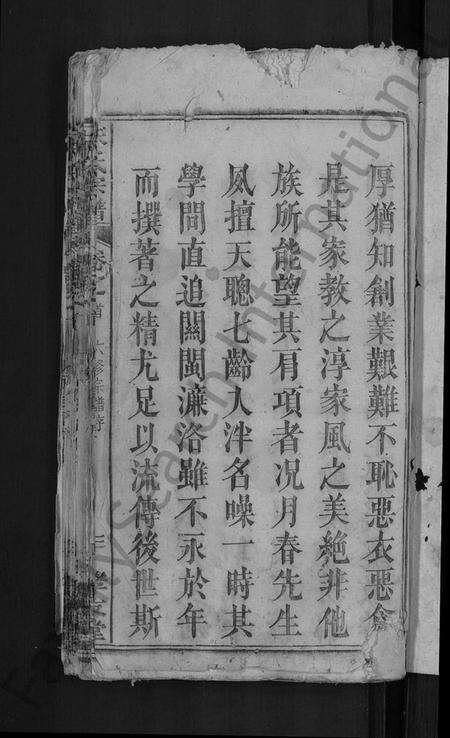 厚猶知創業艱難不恥惡衣惡食
是其家敎之淳家風之美絶非他
族所能望其肩項者况月春先生
夙擅天聰七齡入泮名噪一時其
學問直追關閩濂洛雖不永於年
而撰著之精尤足以流傳後世斯
氏宗譜 卷之首 六修宗譜序
FamilySearch International